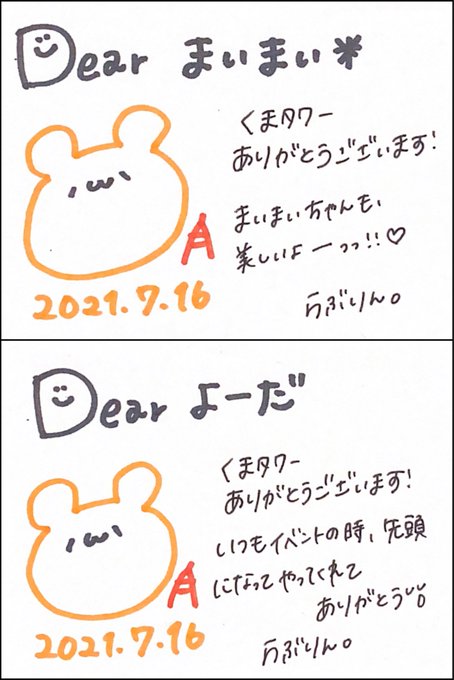 Dear まいまい*
くまタワー
ありがとうございます!
まいまいちゃんも、
美しいよーっっ!!♡
らぶりん。
2021.7.16
Dear よーだ
くまタワー
ありがとうございます!
いつもイベントの時、先頭
になってやってくれて
ありがとう
らぶりん。
2021.7.16